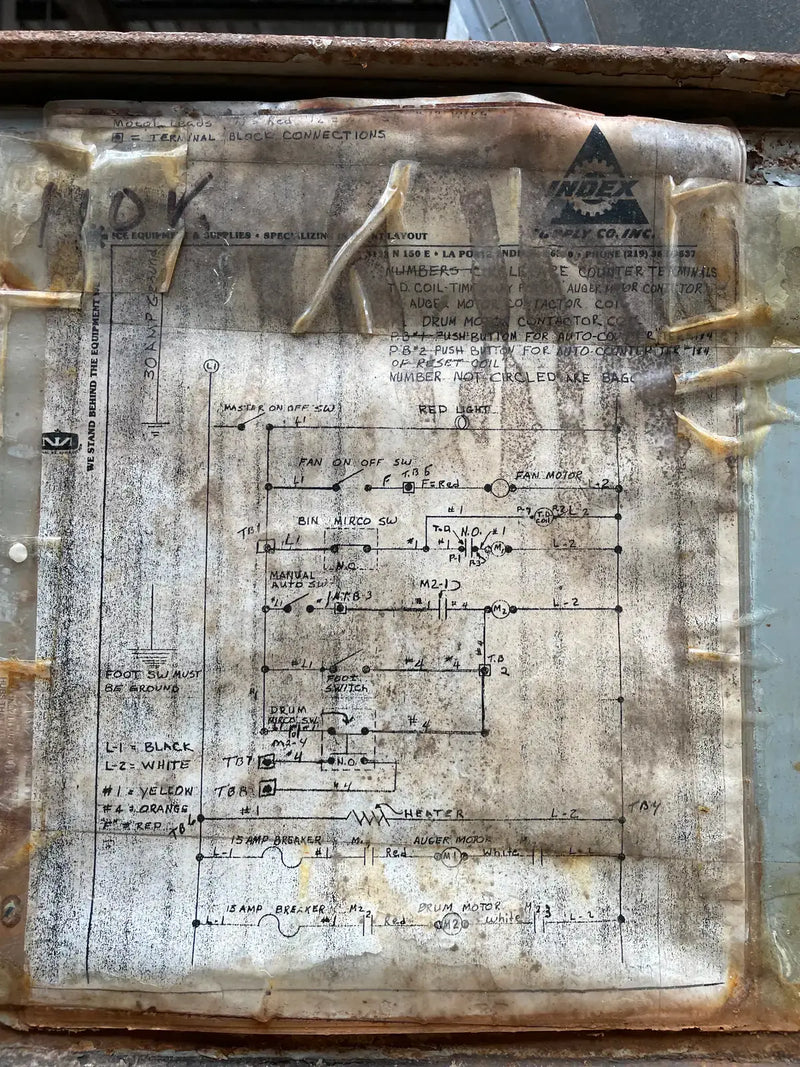 = TERMINAL BLOCK CONNECTIONS
110 V.
INDEX
SUPPLY CO. INC.
& SUPPLIES • SPECIALIZIN LAYOUT
N 150 E • LA PO • PHONE (219)
WE STAND BEHIND THE EQUIPMENT
30 AMP
NUMBERS ARE COUNTER TERMINALS
T.D. COIL-TIM AUGER MOTOR CONTACTOR
AUGER MOTOR CONTACTOR COI
DRUM MOTOR CONTACTOR CO
PB#1 PUSH BUTTON FOR AUTO-CO
PB#2 PUSH BUTTON FOR AUTO-COUNTER
OF RESET COIL
NUMBER NOT CIRCLED ARE BAG
L1
MASTER ON OFF SW L1 RED LIGHT
FAN ON OFF SW T.B 5 FAN MOTOR
L1 F F=Red L-2
#1 T.D. COIL L-2
TB1 BIN MIRCO SW T.D N.O. #1
L1 #1 #1 M1 L-2
N.O. R-1
MANUAL
AUTO SW T.B-3 M2-1
#1 #4 M2 L-2
#L1 #4 #4 T.B 2
FOOT SWITCH
FOOT SW MUST
BE GROUND
DRUM
MIRCO SW #4
M2-4
TB7 #4 N.O.
TB8 #4
L-1 = BLACK
L-2 = WHITE
#1 = YELLOW
#4 = ORANGE
"F" = RED
TB6 #1 HEATER L-2 TB4
15 AMP BREAKER AUGER MOTOR
L-1 #1 Red M1 White L-2
15 AMP BREAKER M2-2 DRUM MOTOR M2-3
L-1 #1 Red M2 White L-2